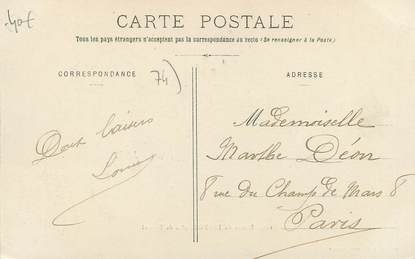 40€
CARTE POSTALE
Tous les pays étrangers n'acceptent pas la correspondance au recto (Se renseigner à la Poste)
CORRESPONDANCE
74)
ADRESSE
Doux baisers
Louis
Mademoiselle
Marthe Déon
8 rue du Champ de Mars 8
Paris